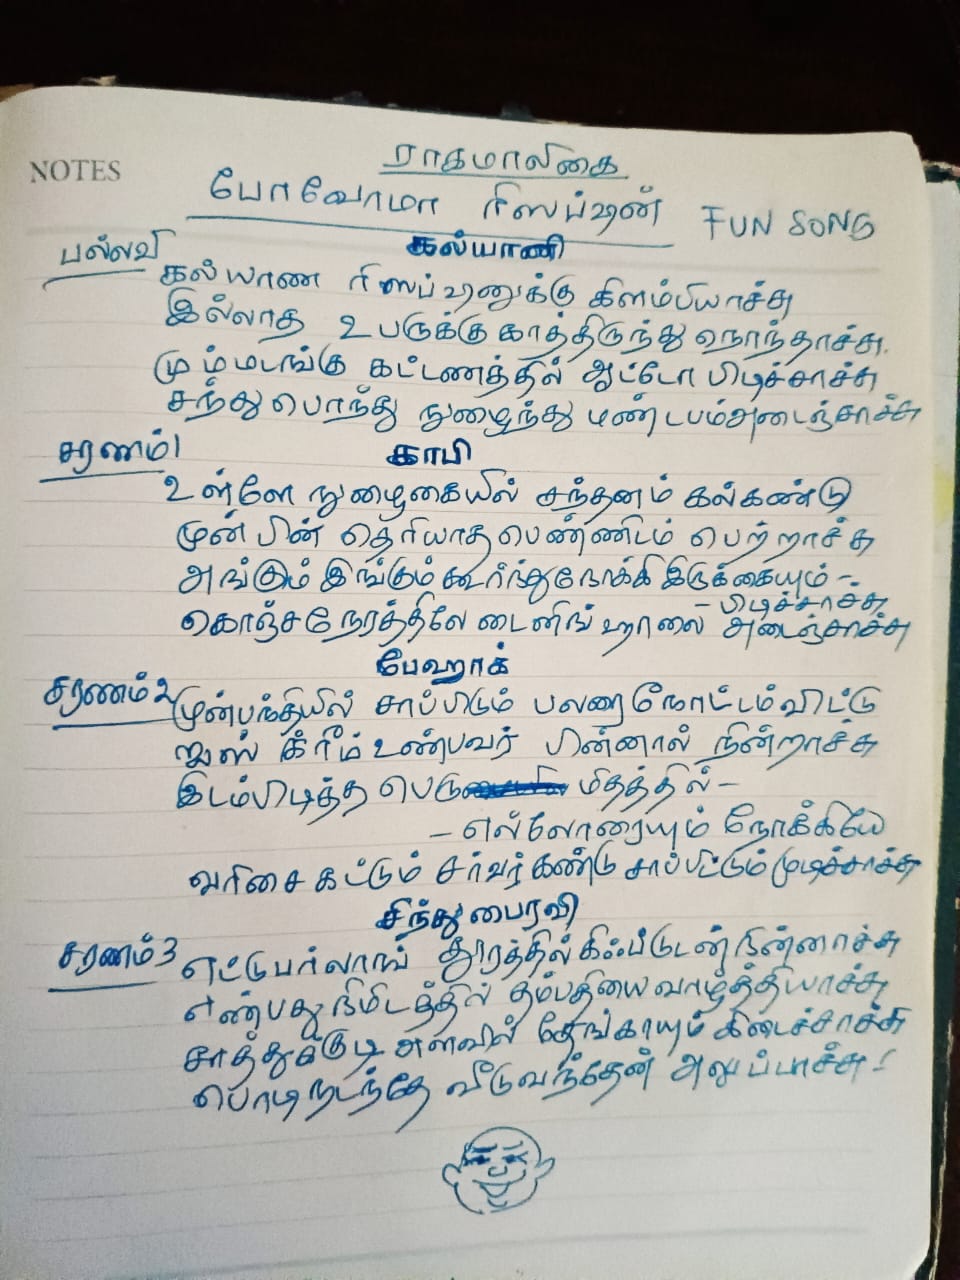 NOTES
ராகமாலிகை
போவோமா ரிஸப்ஷன் FUN SONG
பல்லவி கல்யாணி
கல்யாண ரிஸப்ஷனுக்கு கிளம்பியாச்சு
இல்லாத உபருக்கு காத்திருந்து நொந்தாச்சு
மும்மடங்கு கட்டணத்தில் ஆட்டோ பிடிச்சாச்சு
சந்து பொந்து நுழைந்து மண்டபம் அடைஞ்சாச்சு
சரணம் 1 காபி
உள்ளே நுழைகையில் சந்தனம் கல்கண்டு
முன் பின் தெரியாத பெண்ணிடம் பெற்றாச்சு
அங்கும் இங்கும் கூர்ந்து நோக்கி இருக்கையும் –
– பிடிச்சாச்சு
கொஞ்ச நேரத்திலே டைனிங் ஹாலை அடைஞ்சாச்சு
பேஹாக்
சரணம் 2 முன்பந்தியில் சாப்பிடும் பலரை நோட்டம் விட்டு
ஐஸ் க்ரீம் உண்பவர் பின்னால் நின்றாச்சு
இடம்பிடித்த பெரு மிதத்தில் –
– எல்லோரையும் நோக்கியே
வரிசை கட்டும் சர்வர் கண்டு சாப்பிட்டும் முடிச்சாச்சு
சிந்து பைரவி
சரணம் 3 எட்டு பர்லாங் தூரத்தில் கிஃப்டுடன் நின்னாச்சு
எண்பது நிமிடத்தில் தம்பதியை வாழ்த்தியாச்சு
சாத்துக்குடி அளவில் தேங்காயும் கிடைச்சாச்சு
பொடி நடந்தே வீடு வந்தேன் அலுப்பாச்சு !